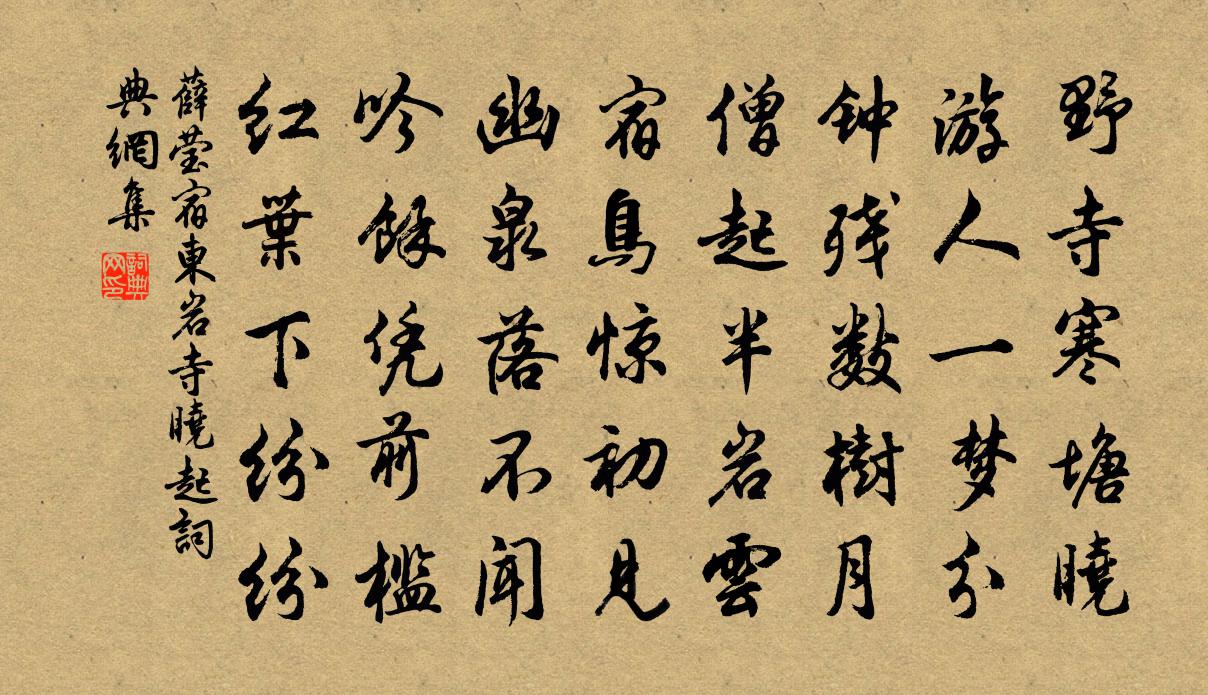 野寺寒塘曉
游人一梦分
钟残數樹月
僧起半岩雲
宿鳥惊初见
幽泉落不闻
吟餘凭前槛
红葉下纷纷
薛莹宿東岩寺曉起詞
典網集
詞典网印